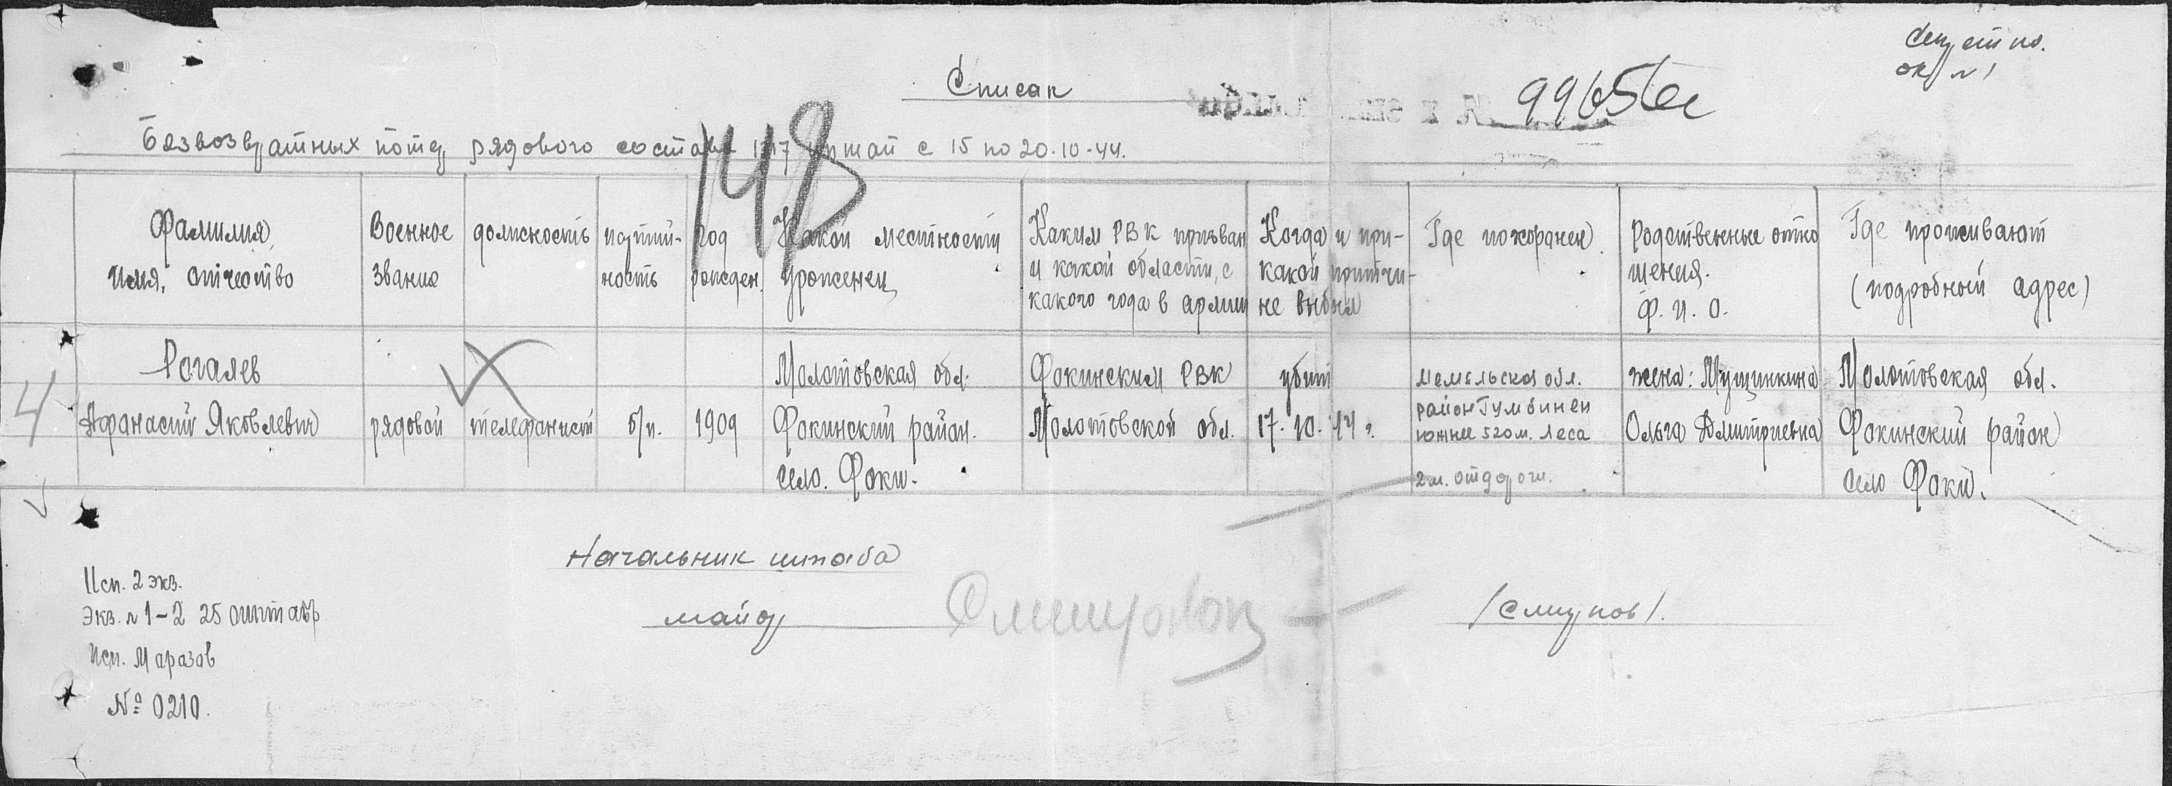 Секретно.
экз N 1
Список
99656с
Безвозвратных потерь рядового состава 1 7 с 15 по 20.10-44.
148
Фамилия, имя, отчество
Военное звание
должность
партий-ность
Год рожден.
Какой местности уроженец
Каким РВК призван и какой области, с какого года в армии
Когда и при-какой притчи-не выбыл
Где похоронен
Родственные отно шения. Ф. И. О.
Где проживают (подробный адрес)
4
Рогалев
Афанасий Яковлевич
рядовой
телефанист
б/п.
1909
Молотовская обл.
Фокинский район.
село. Фоки.
Фокинским РВК
Молотовской обл.
убит
17.10.44 г.
Мемельская обл.
район Гумбинен
южнее 520 м. леса
2 м. от дороги.
жена: Мущинкина
Ольга Дмитриевна
Молотовская обл.
Фокинский район
село Фоки.
Начальник штаба
майор
/Смирнов/.
Исп. 2 экз.
Экз. N 1-2 25
Исп. Маразов
№ 0210.